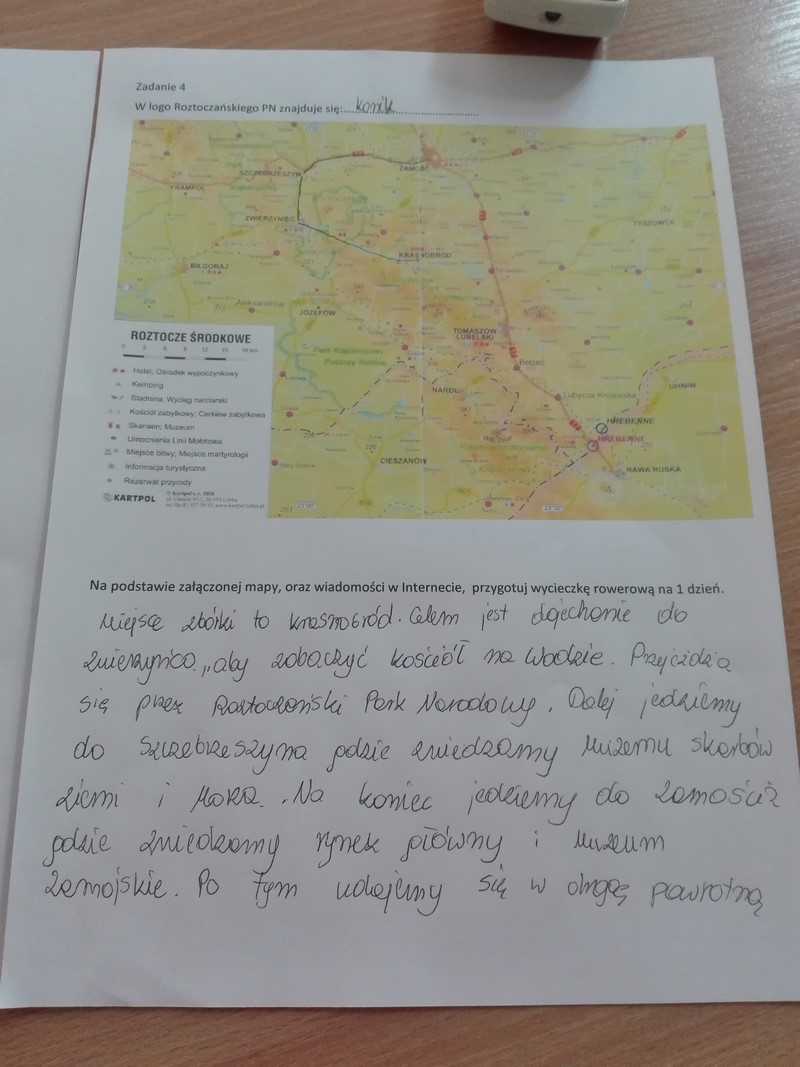 Zadanie 4
W logo Roztoczańskiego PN znajduje się:....konik........................
ZAMOŚĆ
SZCZEBRZESZYN
FRAMPOL
ZWIERZYNIEC
TYSZOWCE
KRASNOBRÓD
BIŁGORAJ
Aleksandrów
JÓZEFÓW
TOMASZÓW
LUBELSKI
Bełżec
Park Krajobrazowy
Puszczy Solskiej
NAROL
Lubycza Królewska
UHNIW
HREBENNE
HREBENNE
CIESZANÓW
RAWA RUSKA
ROZTOCZE ŚRODKOWE
0 3 6 9 12 15 18 km
Hotel; Ośrodek wypoczynkowy
Kemping
Stadnina; Wyciąg narciarski
Kościół zabytkowy; Cerkiew zabytkowa
Skansen; Muzeum
Umocnienia Linii Mołotowa
Miejsce bitwy; Miejsce martyrologii
Informacja turystyczna
Rezerwat przyrody
KARTPOL
© Kartpol s. c. 2010
Na podstawie załączonej mapy, oraz wiadomości w Internecie, przygotuj wycieczkę rowerową na 1 dzień.
Miejsce zbiórki to krasnobród. Celem jest dojechanie do
Zwierzyńca, aby zobaczyć kościół na Wodzie. Przejeżdża
się przez Roztoczański Park Narodowy. Dalej jedziemy
do Szczebrzeszyna gdzie zwiedzamy Muzemu skarbów
ziemi i Morza. Na koniec jedziemy do Zamościa
gdzie zwiedzamy rynek główny i Muzeum
Zamojskie. Po tym udajemy się w drogę powrotną